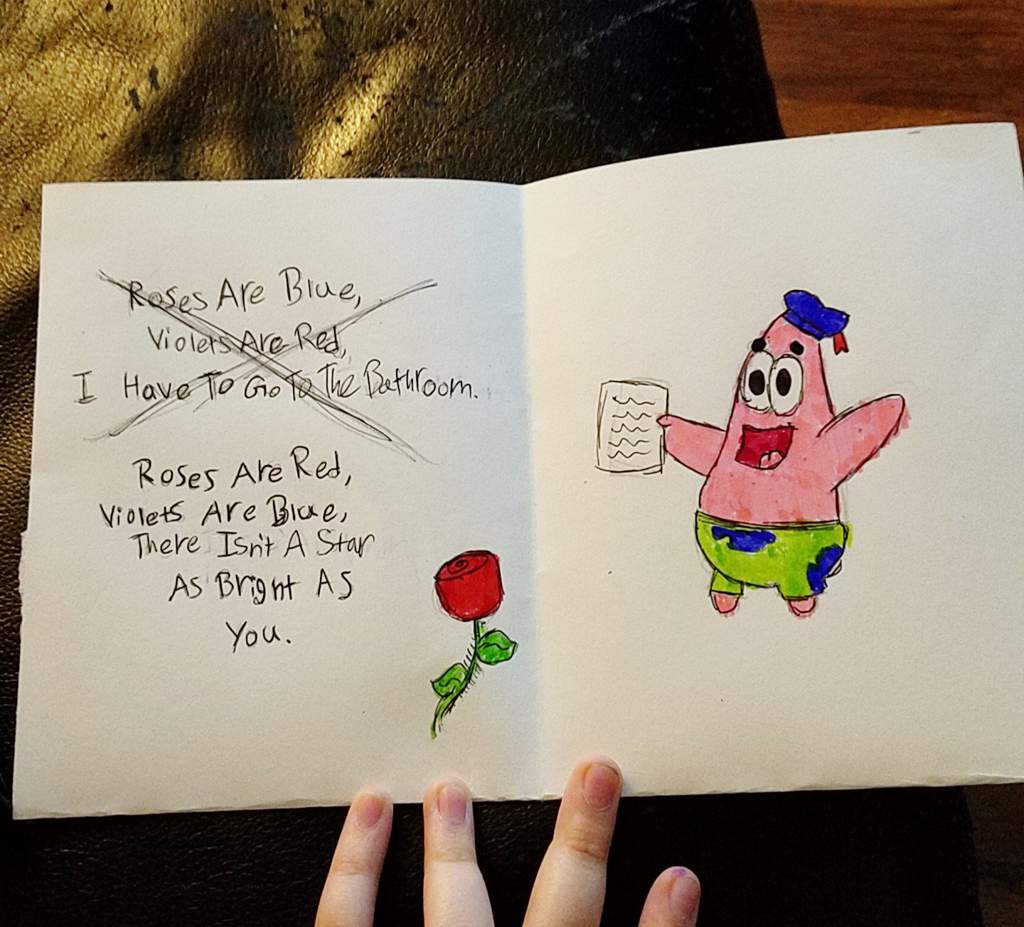 Roses Are Blue,
Violets Are Red,
I Have To Go To The Bathroom.
Roses Are Red,
Violets Are Blue,
There Isn't A Star
As Bright As
You.